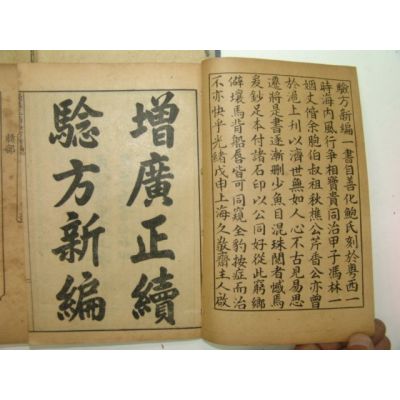 驗方新編一書自善化鮑氏刻於粵西一
時海內風行爭相寶貴同治甲子馮林一
姻丈偕余胞伯叔祖秋樵公芹香公亦曾
於滬上刊以濟世無如人心不古見易思
遷將是書逐漸刪少魚目混珠閱者憾焉
爰鈔足本付諸石印以公同好從此窮鄉
僻壤馬背船脣皆可同窺全豹按症而治
不亦快乎光緒戊申上海久敬齋主人啟
增廣正續
驗方新編